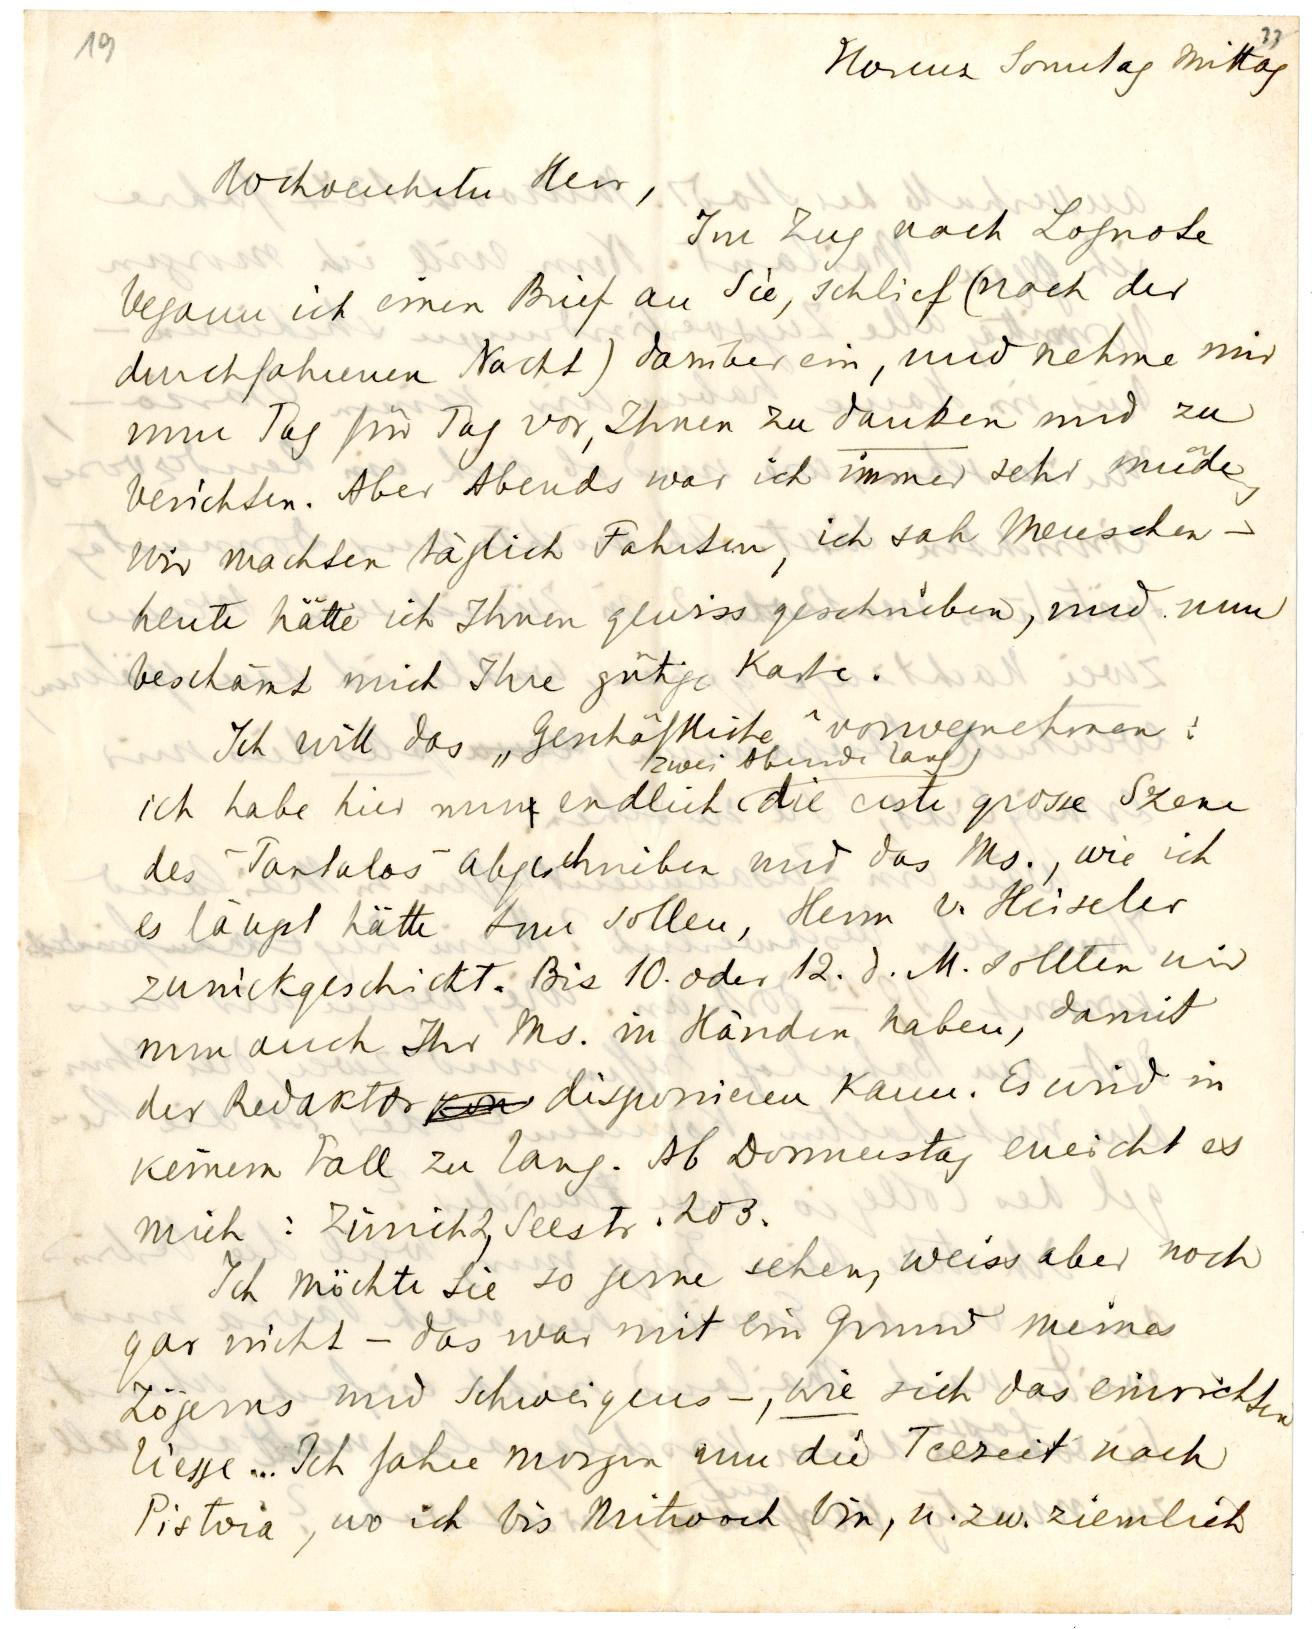 19
33
Florenz Sonntag Mittag
Hochverehrter Herr,
Im Zug nach
begann ich einen Brief an Sie, schlief (nach der
durchfahrenen Nacht) darüber ein, und nehme mir
nun Tag für Tag vor, Ihnen zu danken und zu
berichten. Aber Abends war ich immer sehr müde,
wir machten täglich Fahrten, ich sah Menschen –
heute hätte ich Ihnen gewiss geschrieben, und nun
beschämt mich Ihre gütige Karte.
Ich will das „Geschäftliche“ vorwegnehmen:
(zwei Abende lang)
ich habe hier nun endlich die erste grosse Szene
des "Tantalos" abgeschrieben und das Ms., wie ich
es längst hätte tun sollen, Herrn v. Heiseler
zurückgeschickt. Bis 10. oder 12. d. M. sollten wir
nun auch Ihr Ms. in Händen haben, damit
der Redaktor disponieren kann. Es wird in
keinem Fall zu lang. Ab Donnerstag erreicht es
mich: Zürich 2, Seestr. 203.
Ich möchte Sie so gerne sehen, weiss aber noch
gar nicht – das war mit ein Grund meines
Zögerns und Schweigens –, wie sich das einrichten
liesse... Ich fahre morgen um die Teezeit nach
Pistoia, wo ich bis Mittwoch bin, u. zw. ziemlich